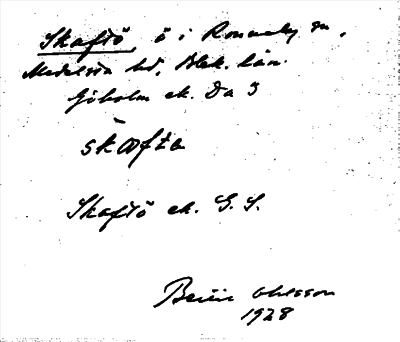 Skaftö, ö i Ronneby sn,
Medelsta hd, Blek. län.
Göholm ek. Da 3
skafta
Skaftö ek. G. S.
Ohlsson
1928